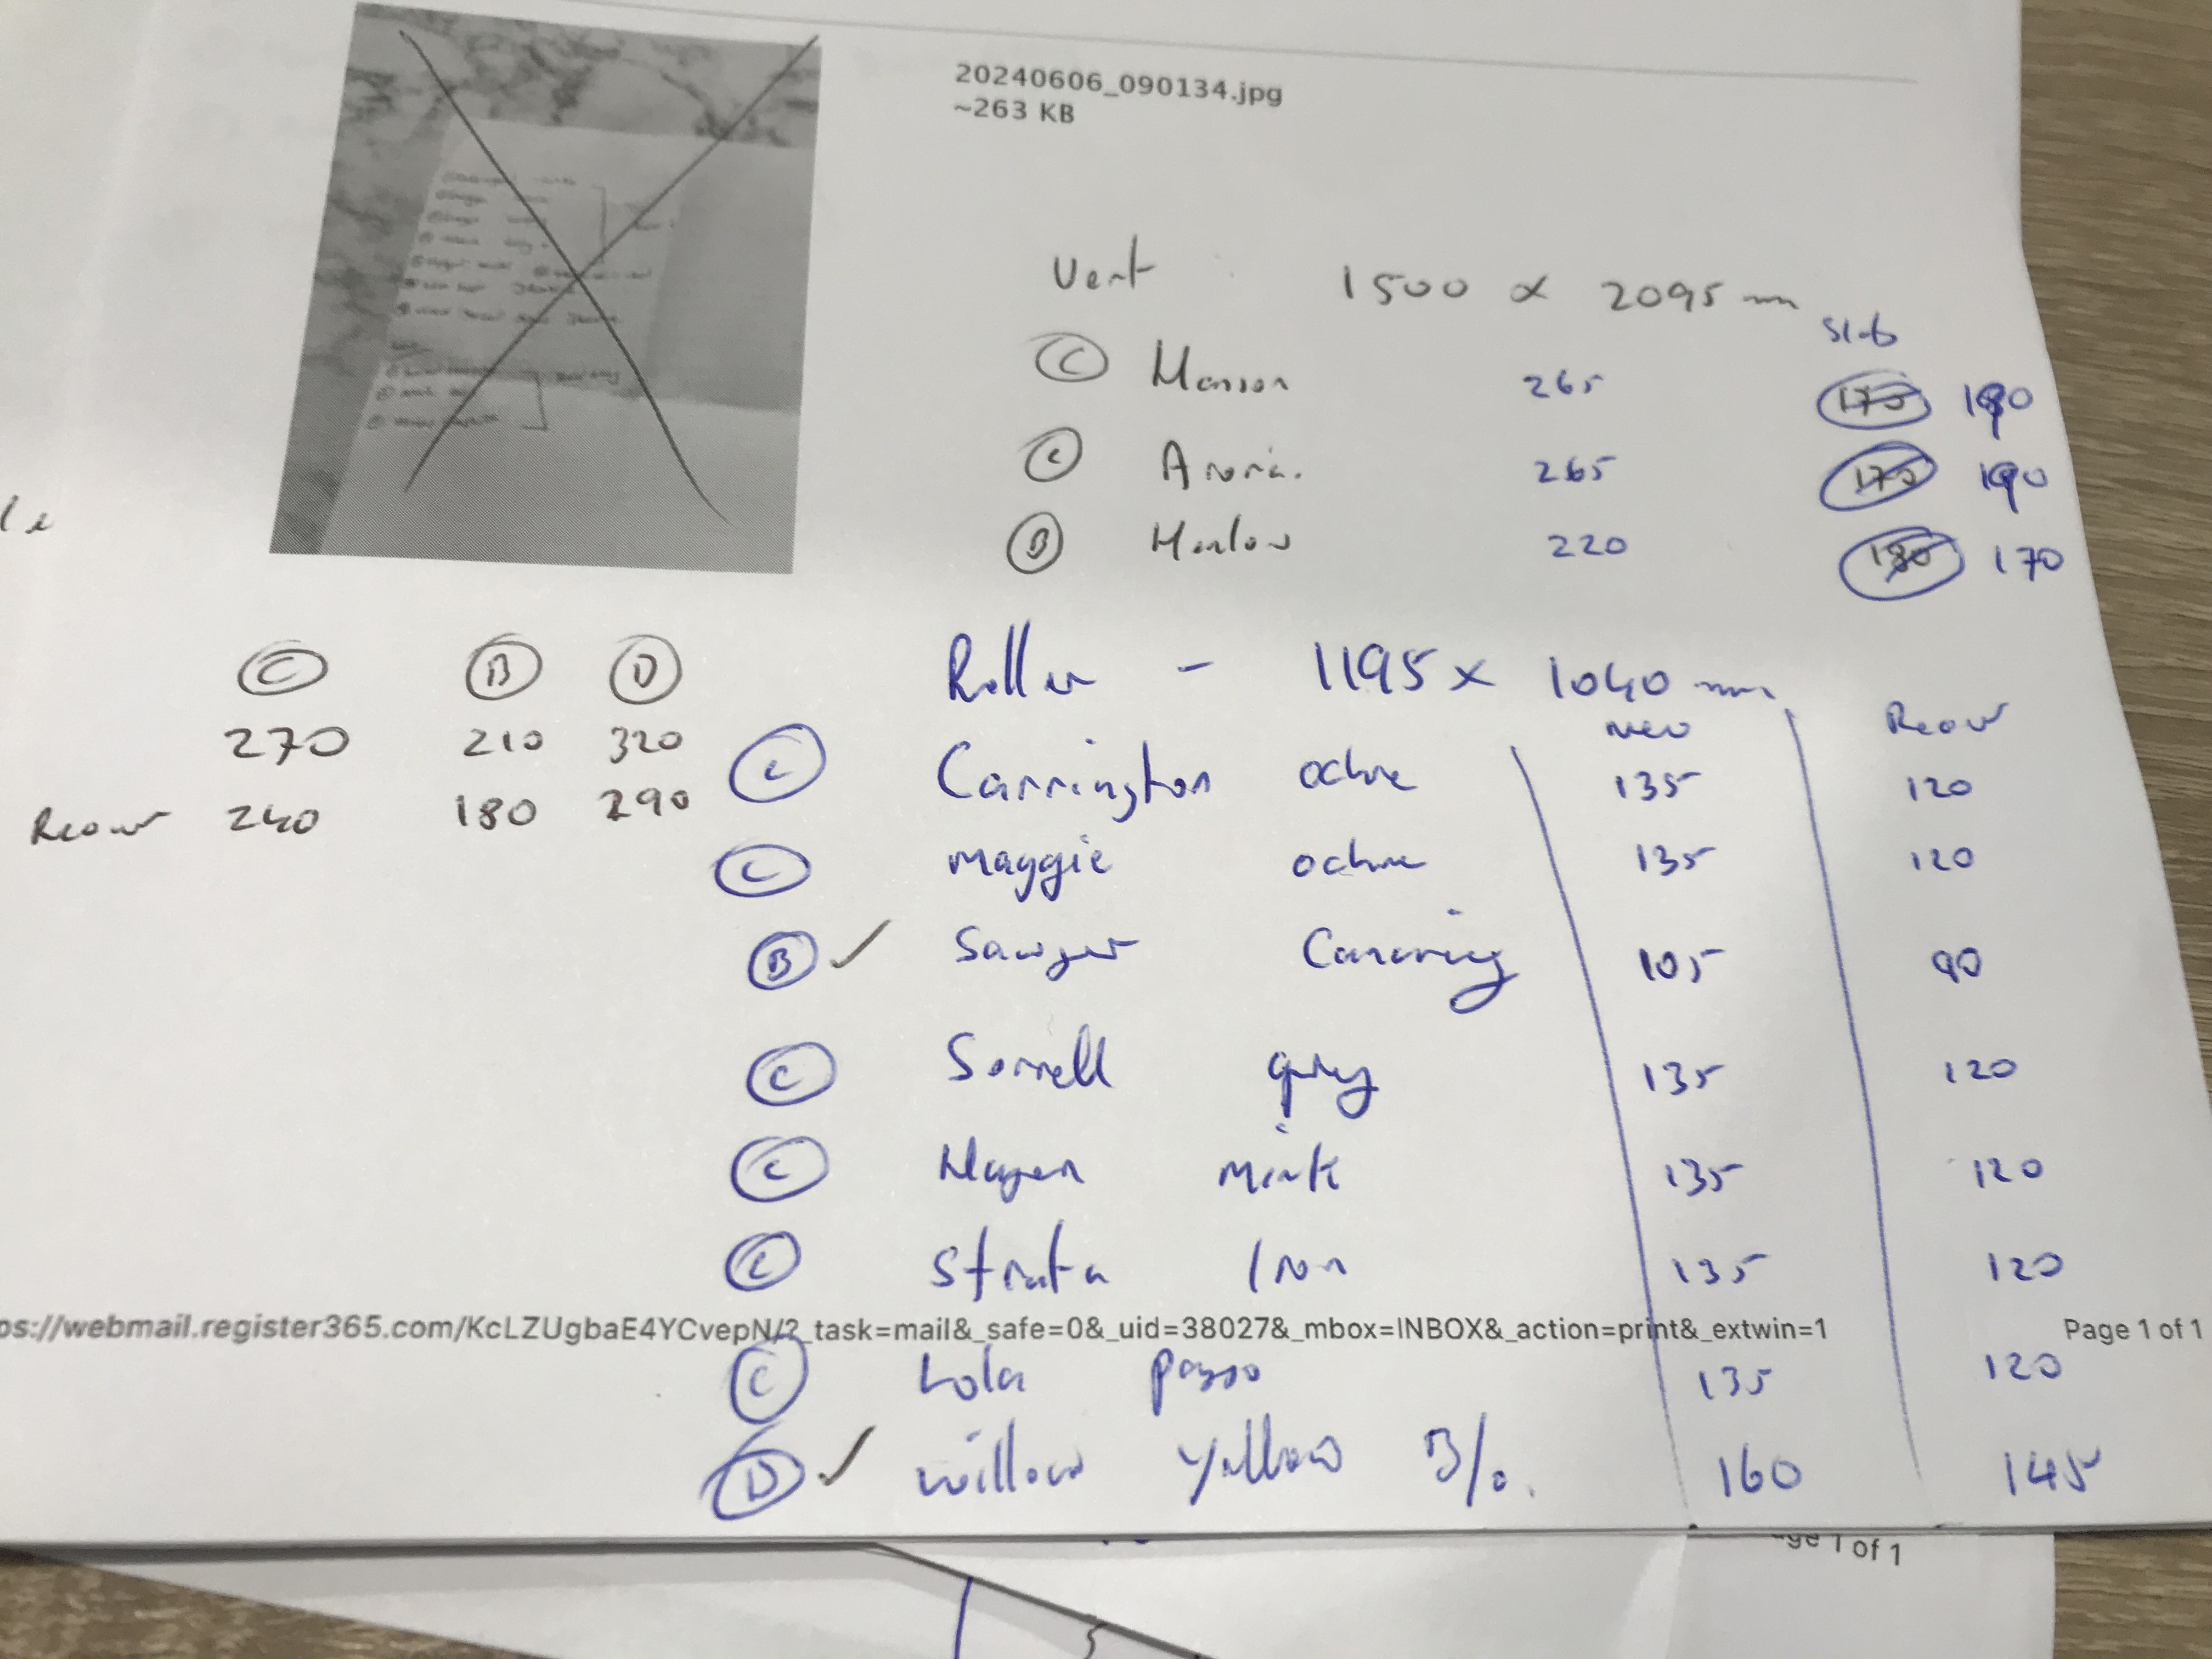 20240606_090134.jpg
~263 KB
Vert 1500 x 2095 mm
Slat
C Hanson 265 175 190
C 265 175 190
B Harlow 220 180 170
C B D
270 210 320
Recover 240 180 290
Roller - 1195 x 1040 mm
new Recover
C Carrington ochre 135 120
C Maggie ochre 135 120
B ✓ Sawyer Canary 105 90
C Sorrell grey 135 120
C Hagen Mink 135 120
C Strata Iron 135 120
ps://webmail.register365.com/KcLZUgbaE4YCvepN/?_task=mail&_safe=0&_uid=38027&_mbox=INBOX&_action=print&_extwin=1 Page 1 of 1
C Lola 135 120
D ✓ Willow Yellow B/o. 160 145
age 1 of 1